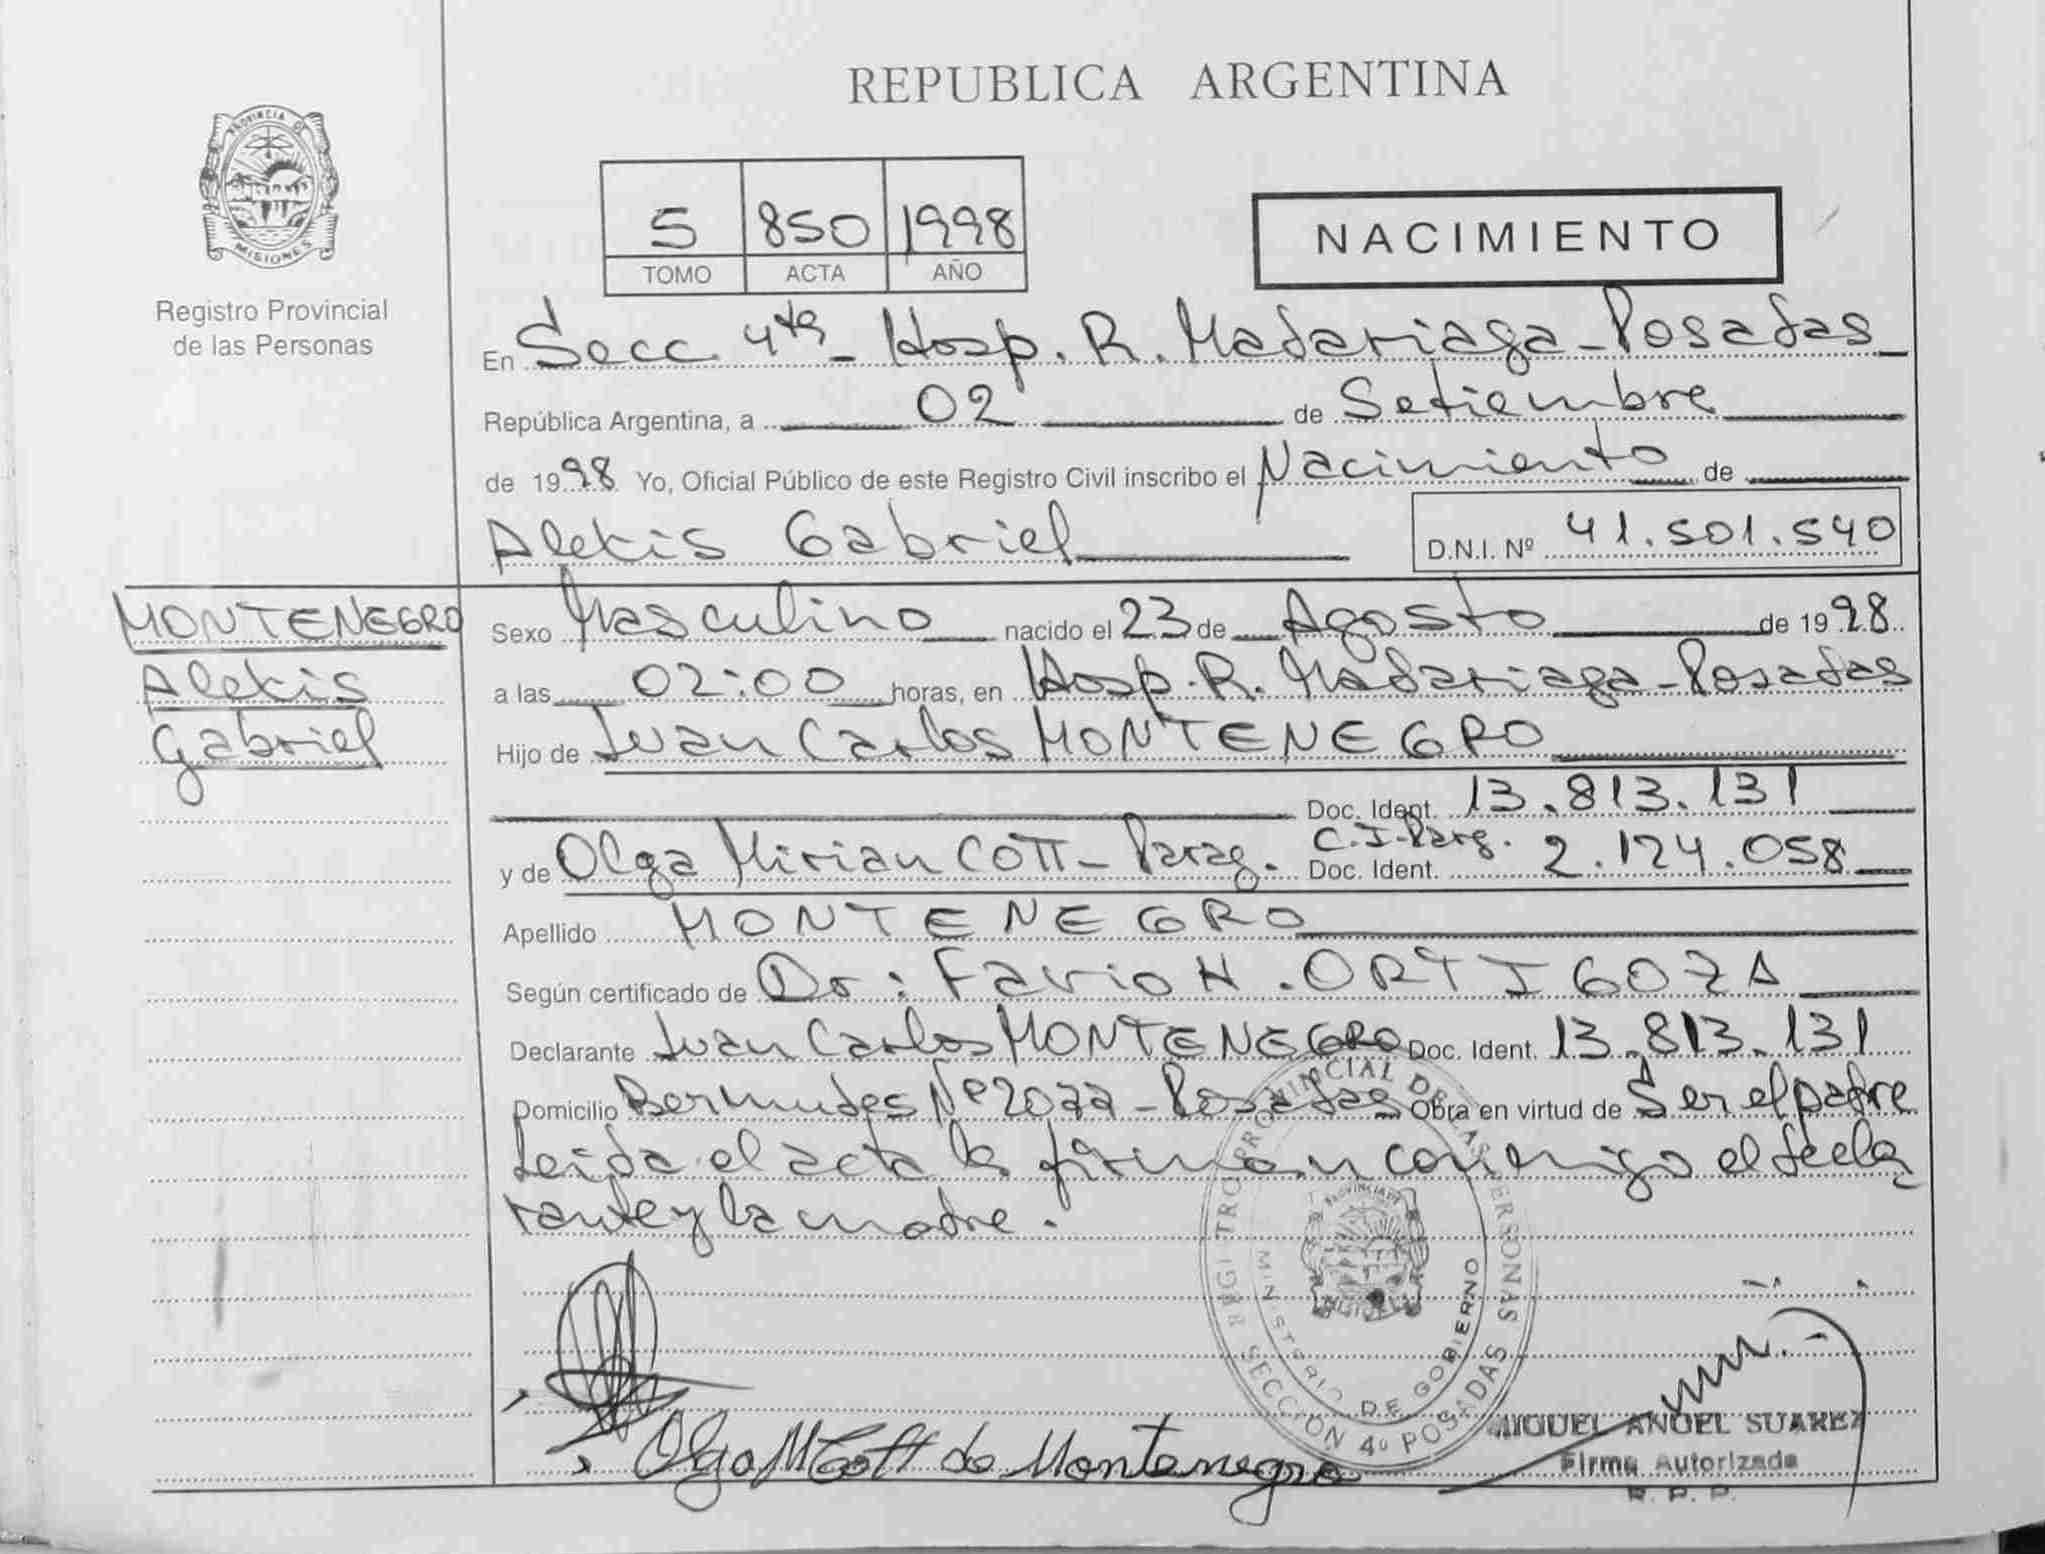 REPUBLICA ARGENTINA
PROVINCIA DE
MISIONES
Registro Provincial
de las Personas
5 850 1998
TOMO ACTA AÑO
NACIMIENTO
En Secc. 4ta - Hosp. R. Madariaga - Posadas
República Argentina, a 02 de Setiembre
de 1998 Yo, Oficial Público de este Registro Civil inscribo el Nacimiento de
Alexis Gabriel D.N.I. Nº 41.501.540
MONTENEGRO
Alexis
Gabriel
Sexo Masculino nacido el 23 de Agosto de 1998
a las 02:00 horas, en Hosp. R. Madariaga - Posadas
Hijo de Juan Carlos MONTENEGRO
Doc. Ident. 13.813.131
y de Olga Mirian COTT - Parag. C.I. Parg. Doc. Ident. 2.124.058
Apellido MONTENEGRO
Según certificado de Dr: Favio H. ORTIGOZA
Declarante Juan Carlos MONTENEGRO Doc. Ident. 13.813.131
Domicilio Bermudes Nº 2077 - Posadas Obra en virtud de Ser el padre
Leida el acta la firman conmigo el decla
rante y la madre.
REGISTRO PROVINCIAL DE LAS PERSONAS
MINISTERIO DE GOBIERNO
SECCION 4º POSADAS
Olga M Cott de Montenegro
MIGUEL ANGEL SUAREZ
Firma Autorizada
R. P. P.